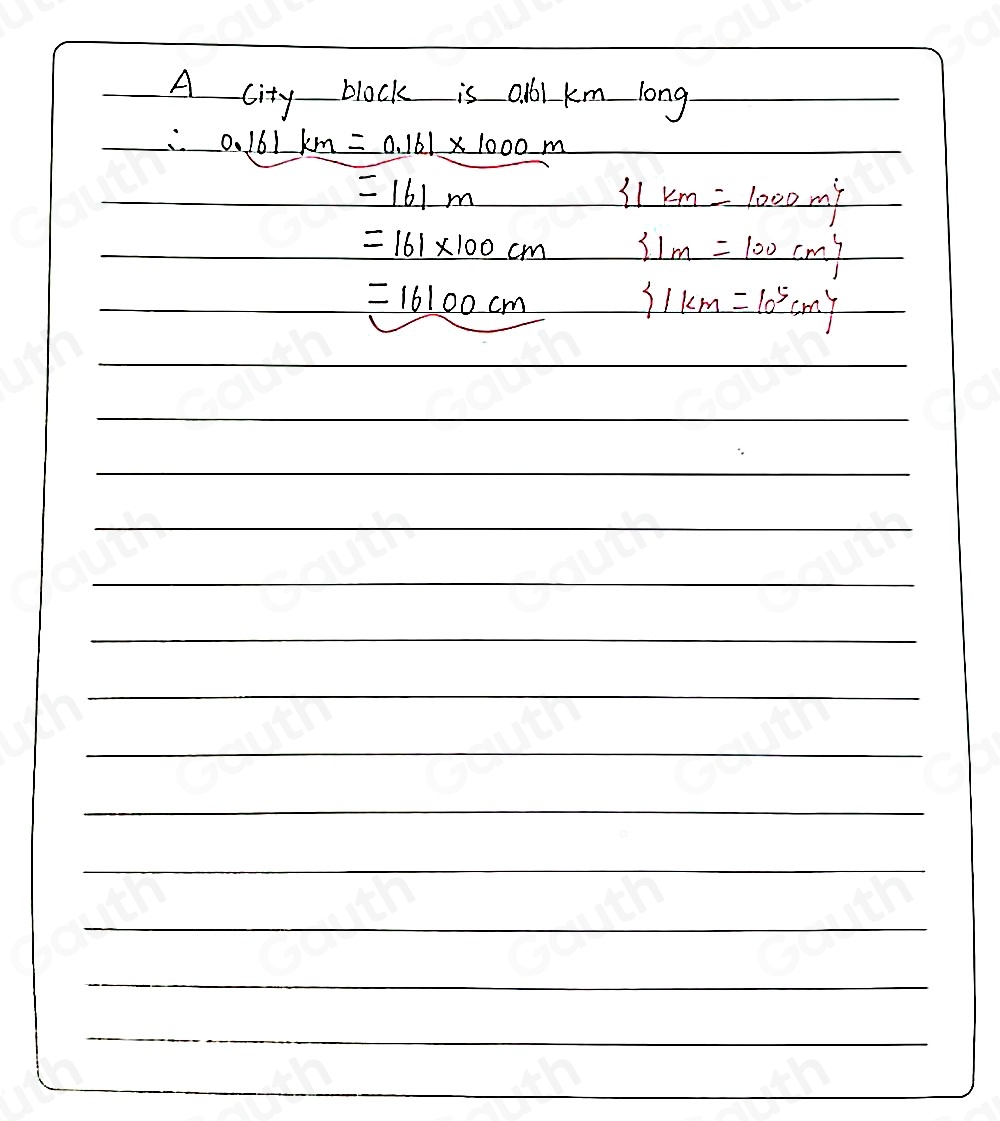 A City block is 0.161 km long
∴ 0.161 km = 0.161 × 1000 m
= 161 m {1 km = 1000 m}
= 161 × 100 cm {1m = 100 cm}
= 16100 cm {1 km = 10⁵ cm}
Gauth